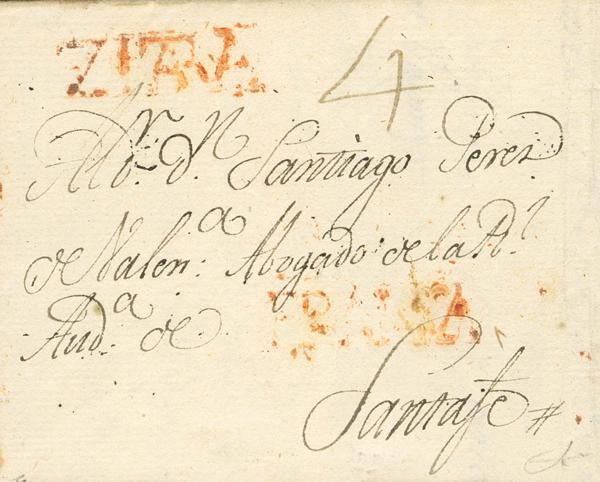 ZITAR 4
Al Sr. Dn. Santiago Perez
de Valena. Abogado de la Rl.
Auda. de
FRANCA
Santafe #